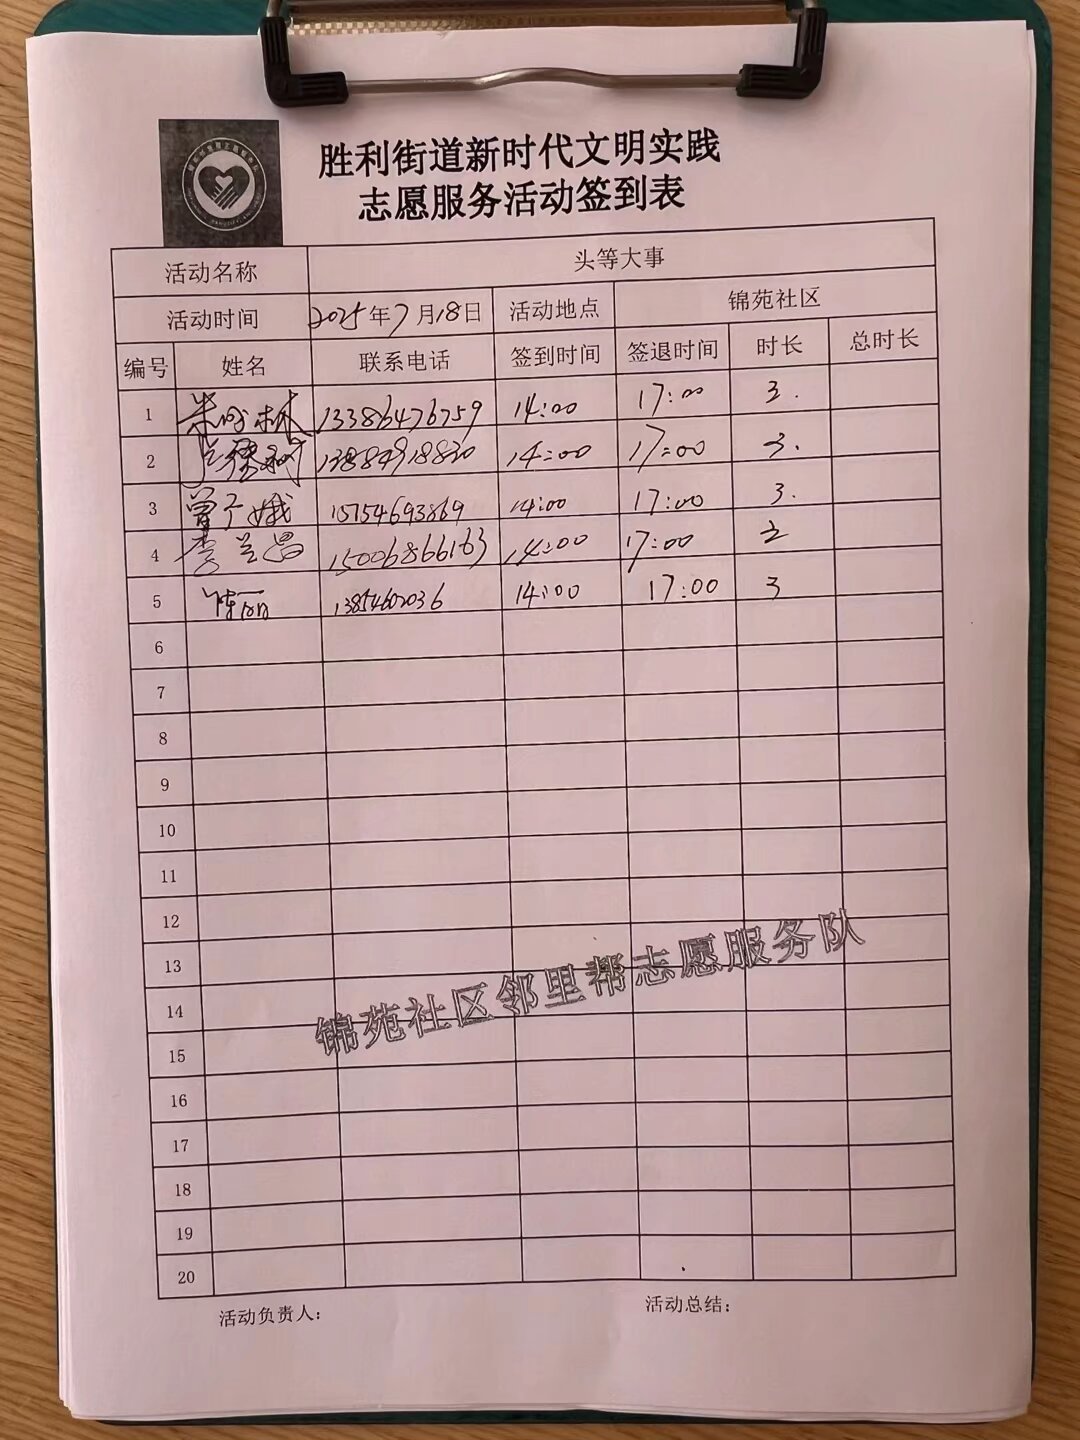 胜利街道新时代文明实践
志愿服务活动签到表
活动名称 头等大事
活动时间 2025年7月18日 活动地点 锦苑社区
编号 姓名 联系电话 签到时间 签退时间 时长 总时长
1 林 13386476759 14:00 17:00 3.
2 13884918830 14:00 17:00 3.
3 曾子娥 15754693869 14:00 17:00 3.
4 李兰昌 15006866163 14:00 17:00 3
5 陈丽 13854602036 14:00 17:00 3
6
7
8
9
10
11
12
13
14
15
16
17
18
19
20
锦苑社区邻里帮志愿服务队
活动负责人: 活动总结: